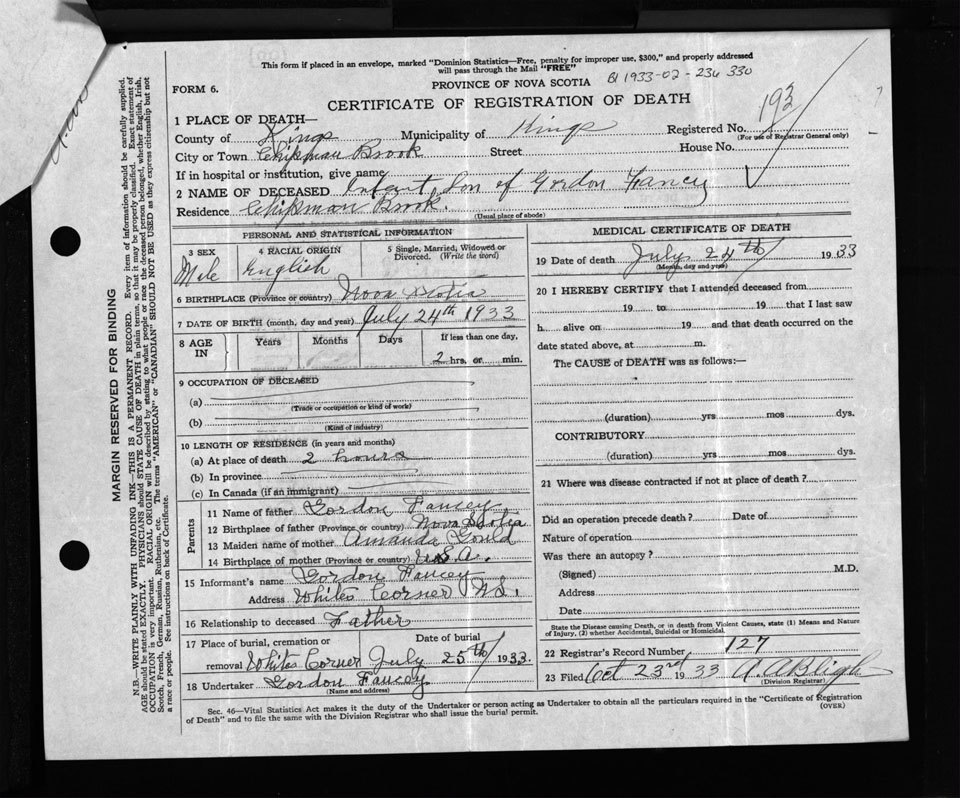 This form if placed in an envelope, marked "Dominion Statistics—Free, penalty for improper use, $300," and properly addressed
will pass through the Mail "FREE"
1933-02-236 330
FORM 6.
PROVINCE OF NOVA SCOTIA
CERTIFICATE OF REGISTRATION OF DEATH
1 PLACE OF DEATH—
County of Kings Municipality of Kings Registered No.
(For use of Registrar General only)
City or Town Chipman Brook Street House No.
If in hospital or institution, give name
2 NAME OF DECEASED Infant Son of Gordon Fancey
Residence Chipman Brook.
(Usual place of abode)
PERSONAL AND STATISTICAL INFORMATION
3 SEX 4 RACIAL ORIGIN 5 Single, Married, Widowed or
Divorced. (Write the word)
Male English
6 BIRTHPLACE (Province or country) Nova Scotia
7 DATE OF BIRTH (month, day and year) July 24th 1933
8 AGE IN Years Months Days If less than one day,
2 hrs. or min.
9 OCCUPATION OF DECEASED
(a)
(Trade or occupation or kind of work)
(b)
(Kind of industry)
10 LENGTH OF RESIDENCE (in years and months)
(a) At place of death 2 hours
(b) In province
(c) In Canada (if an immigrant)
Parents
11 Name of father Gordon Fancey
12 Birthplace of father (Province or country) Nova Scotia
13 Maiden name of mother Amanda Gould
14 Birthplace of mother (Province or country) U.S.A.
15 Informant's name Gordon Fancey
Address Whites Corner N.S.
16 Relationship to deceased Father
17 Place of burial, cremation or Date of burial
removal Whites Corner July 25th 1933.
18 Undertaker Gordon Fancey
(Name and address)
MEDICAL CERTIFICATE OF DEATH
19 Date of death July 24th 1933
(Month, day and year)
20 I HEREBY CERTIFY that I attended deceased from
19 to 19 that I last saw
h alive on 19 and that death occurred on the
date stated above, at m.
The CAUSE of DEATH was as follows:—
(duration) yrs mos dys.
CONTRIBUTORY
(duration) yrs mos dys.
21 Where was disease contracted if not at place of death?
Did an operation precede death? Date of
Nature of operation
Was there an autopsy?
(Signed) M.D.
Address
Date
State the Disease causing Death, or in death from Violent Causes, state (1) Means and Nature
of Injury, (2) whether Accidental, Suicidal or Homicidal.
22 Registrar's Record Number 127
23 Filed Oct 23rd 1933 A A Bligh
(Division Registrar)
Sec. 46—Vital Statistics Act makes it the duty of the Undertaker or person acting as Undertaker to obtain all the particulars required in the "Certificate of Registration
of Death" and to file the same with the Division Registrar who shall issue the burial permit.
(OVER)
MARGIN RESERVED FOR BINDING
N.B.—WRITE PLAINLY WITH UNFADING INK—THIS IS A PERMANENT RECORD. Every item of information should be carefully supplied.
AGE should be stated EXACTLY. PHYSICIANS should STATE CAUSE OF DEATH in plain terms, so that it may be properly classified. Exact statement of
OCCUPATION is very important. RACIAL ORIGIN will be described by stating to what people or race the deceased person belonged, whether English, Irish,
Scotch, French, German, Russian, Ruthenian, etc. The terms "AMERICAN" or "CANADIAN" SHOULD NOT BE USED as they express citizenship but not
a race or people. See instructions on back of Certificate.